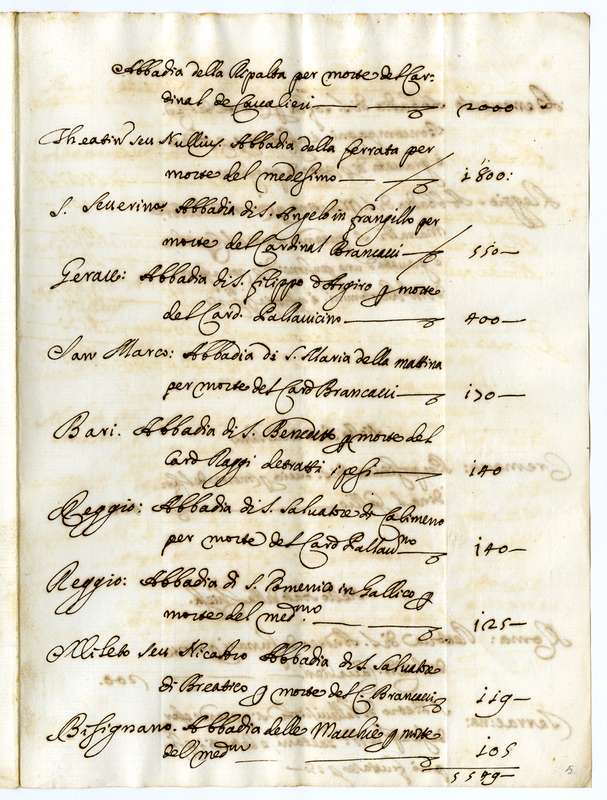 Abbadia della Ripalta per morte del Car-
dinal de Cavalieri 2000
Theatin seu Nullius. Abbadia della ferrata per
morte del medesimo 1800:
S. Severino Abbadia di S. Angelo in frangillo per
morte del Cardinal Brancacci 550
Gerace: Abbadia di S. filippo d'Argiro p morte
del Card. Pallavicino 400
San Marco: Abbadia di S. Maria della mattina
per morte del Card Brancacci 170
Bari. Abbadia di S. Benedetto p morte del
Card Raggi detratti i pesi 140
Reggio: Abbadia di S. Salvatore de Calimeno
per morte del Card Pallavno 140
Reggio: Abbadia di S. Domenico in Gallico p
morte del medmo. 125
Mileto seu Nicastro Abbadia di S. Salvatore
di Breatico p morte del C. Brancacci 119
Bisignano. Abbadia delle Macchie p morte
del medmo 105
5579
5